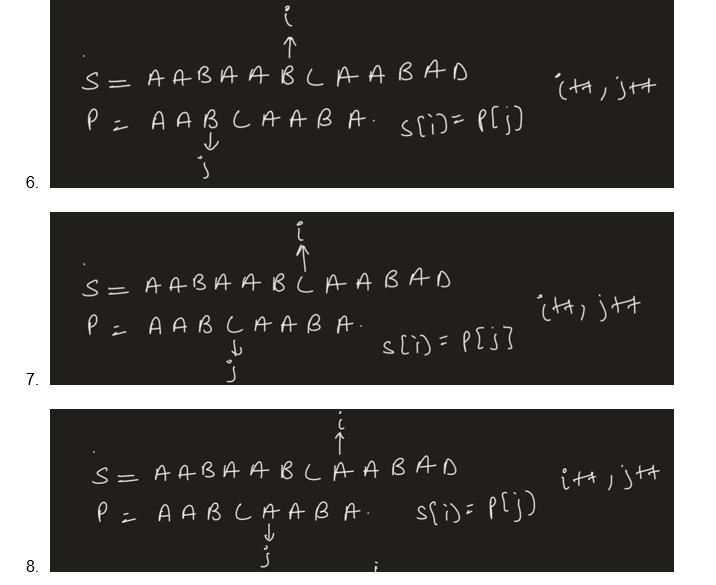 i
↑
S = A A B A A B C A A B A D
i++, j++
P = A A B C A A B A. S[i) = P[j)
↓
j
6.
i
↑
S = A A B A A B C A A B A D
i++, j++
P = A A B C A A B A. S[i) = P[j]
↓
j
7.
i
↑
S = A A B A A B C A A B A D
i++, j++
P = A A B C A A B A. S[i) = P[j)
↓
j
8.
i